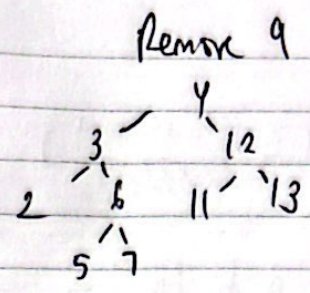 Remove 9
9
3 12
2 6 11 13
5 7